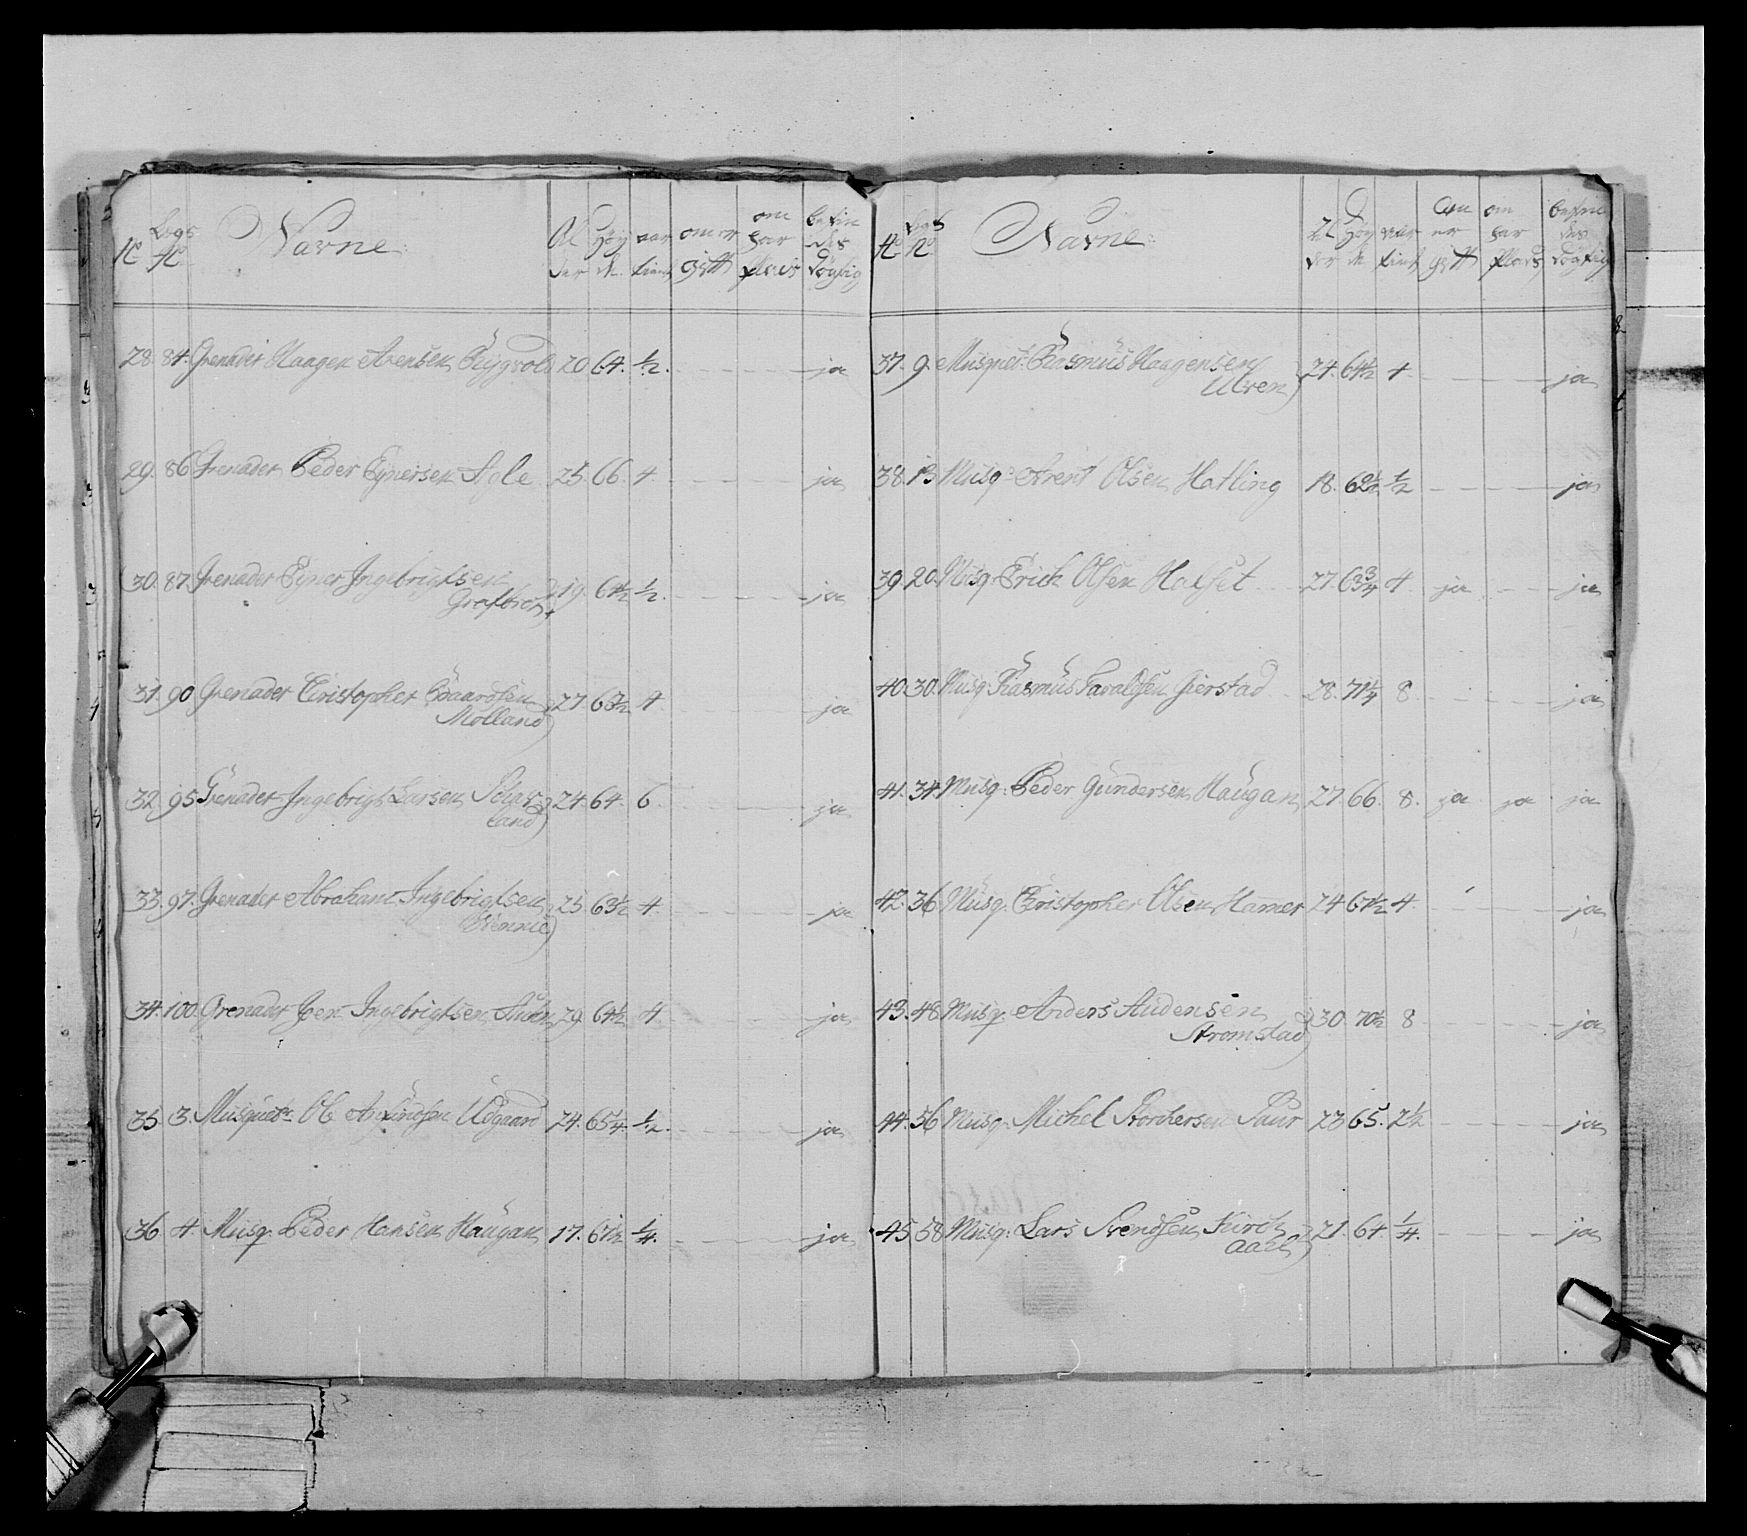 No Lægs No Navne: Al der Høy de vær tient om er gift om har plads befin des dögtig
28. 84. Grenader Haagen Arensen Rygvold 20 64. 1/2. ja
29. 86 Grenader Peder Eynersen Agle 25. 66. 4 ja
30. 87. Grenader Eyner Ingebrigtsen
Graftsen 19. 64 1/2 1/2. ja
31. 90 Grenader Christopher Baardsen
Molland) 27. 63 1/2 4 ja
32. 95 Grenader Ingebrigt Larsen
land) 24. 64. 6. ja
33. 97. Grenader Abraham Ingebrigtsen
25. 63 1/2 4. ja
34. 100. Grenader Joen Ingebrigtsen 29. 64 1/2 4 ja
35. 3. Musqueter Ole Amundsen Udgaard 24. 65 1/4. 1/2. ja
36. 4. Musq. Peder Hansen Haugan 17. 61 1/2 1/4. ja
No Lægs No Navne: Al der Høy de vær tient Om er gift om har plads befin des dögtig
37. 9. Musquet: Rasmus Haagensen
Ulven) 24. 64 1/2 4. ja
38. 13 Musq: Arent Olsen Hatling 18. 62 1/2 1/2 ja
39. 20. Musq: Erich Olsen Halset 27. 63 3/4 4 ja ja
40. 30. Musq: Rasmus Haraldsen Gierstad 28. 71 1/4 8 ja
41. 34. Musq: Peder Gundersen Haugan 27. 66. 8. ja ja ja
42. 36 Musq. Christopher Olsen Hamer 24 67 1/2 4. ja
43. 48 Musq. Anders Audensen
Stromstad) 30. 70 1/2 8 ja
44. 56 Musq: Michel Storchersen Saur 23 65. 2 1/2 ja
45 58 Musq: Lars Svendsen Kirch
Aael) 21. 64 1/4. ja